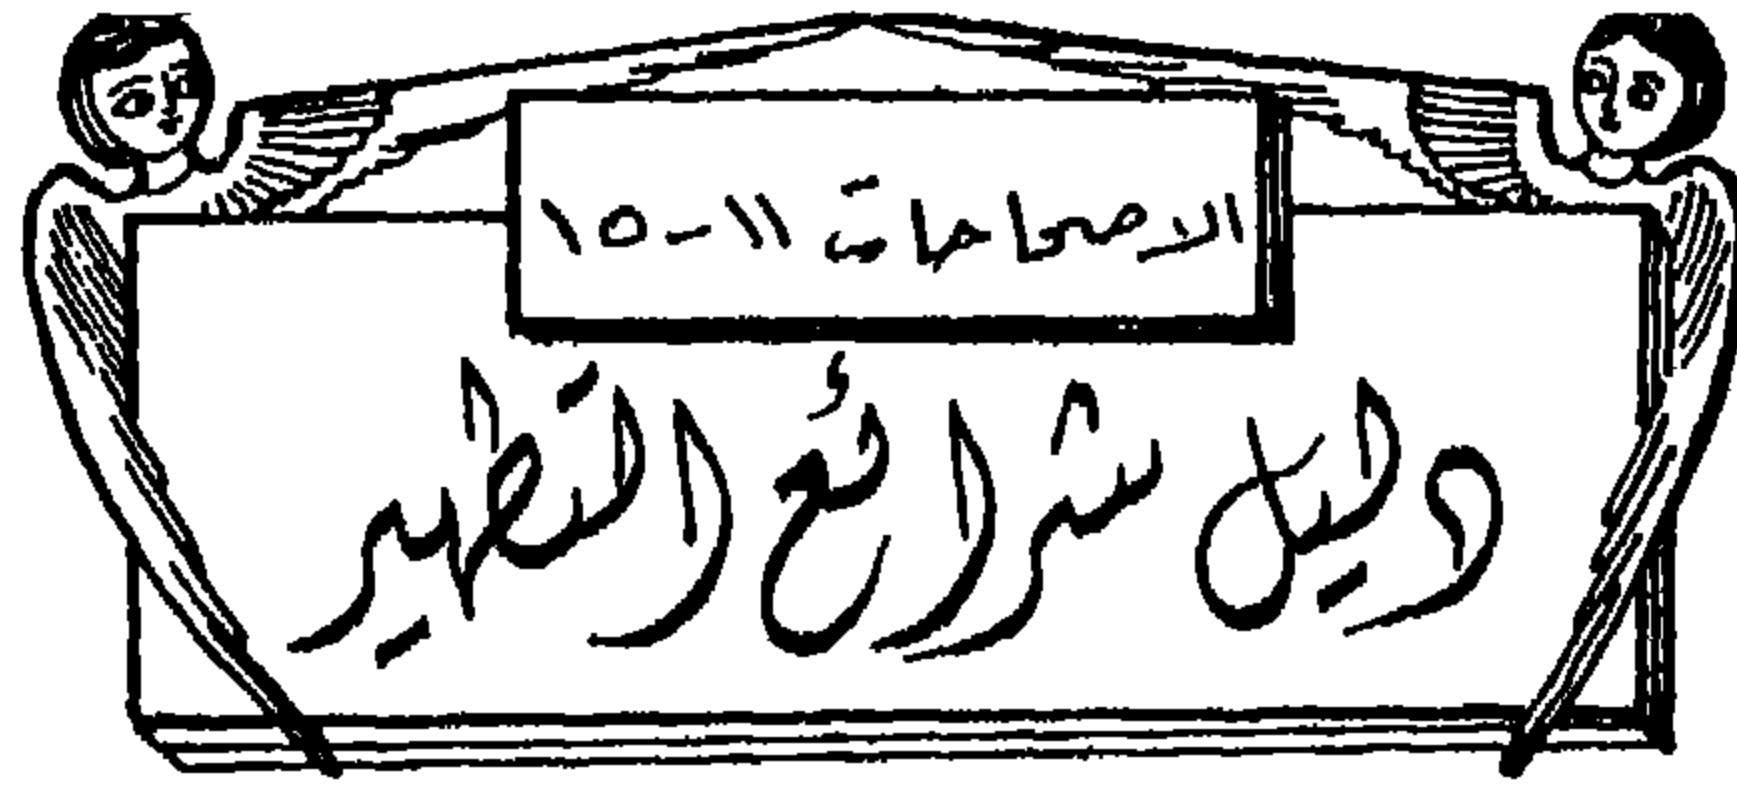 الاصحاحات ١١-١٥
دليل شرائع التطهير